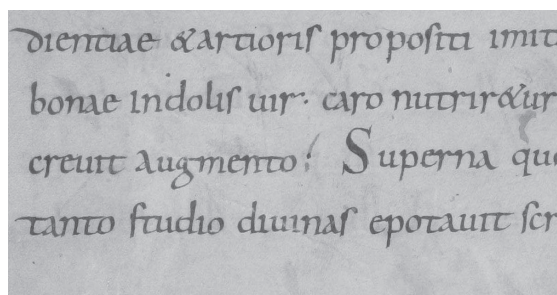 dientiae & artioris propositi imit
bonae indolis uir· caro nutrir&ur
creuit augmento; Superna qu
tanto studio diuinas epotauit scr